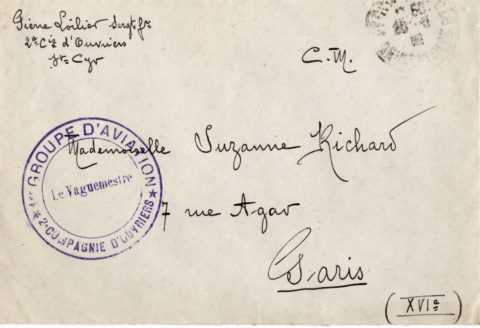 Pierre Loilier Sergt fr
2e Cie d'Ouvriers
St Cyr
C.M.
Mademoiselle Suzanne Richard
7 rue Agar
Paris
(XVIe)
1er GROUPE D'AVIATION
Le Vaguemestre
2e COMPAGNIE D'OUVRIERS